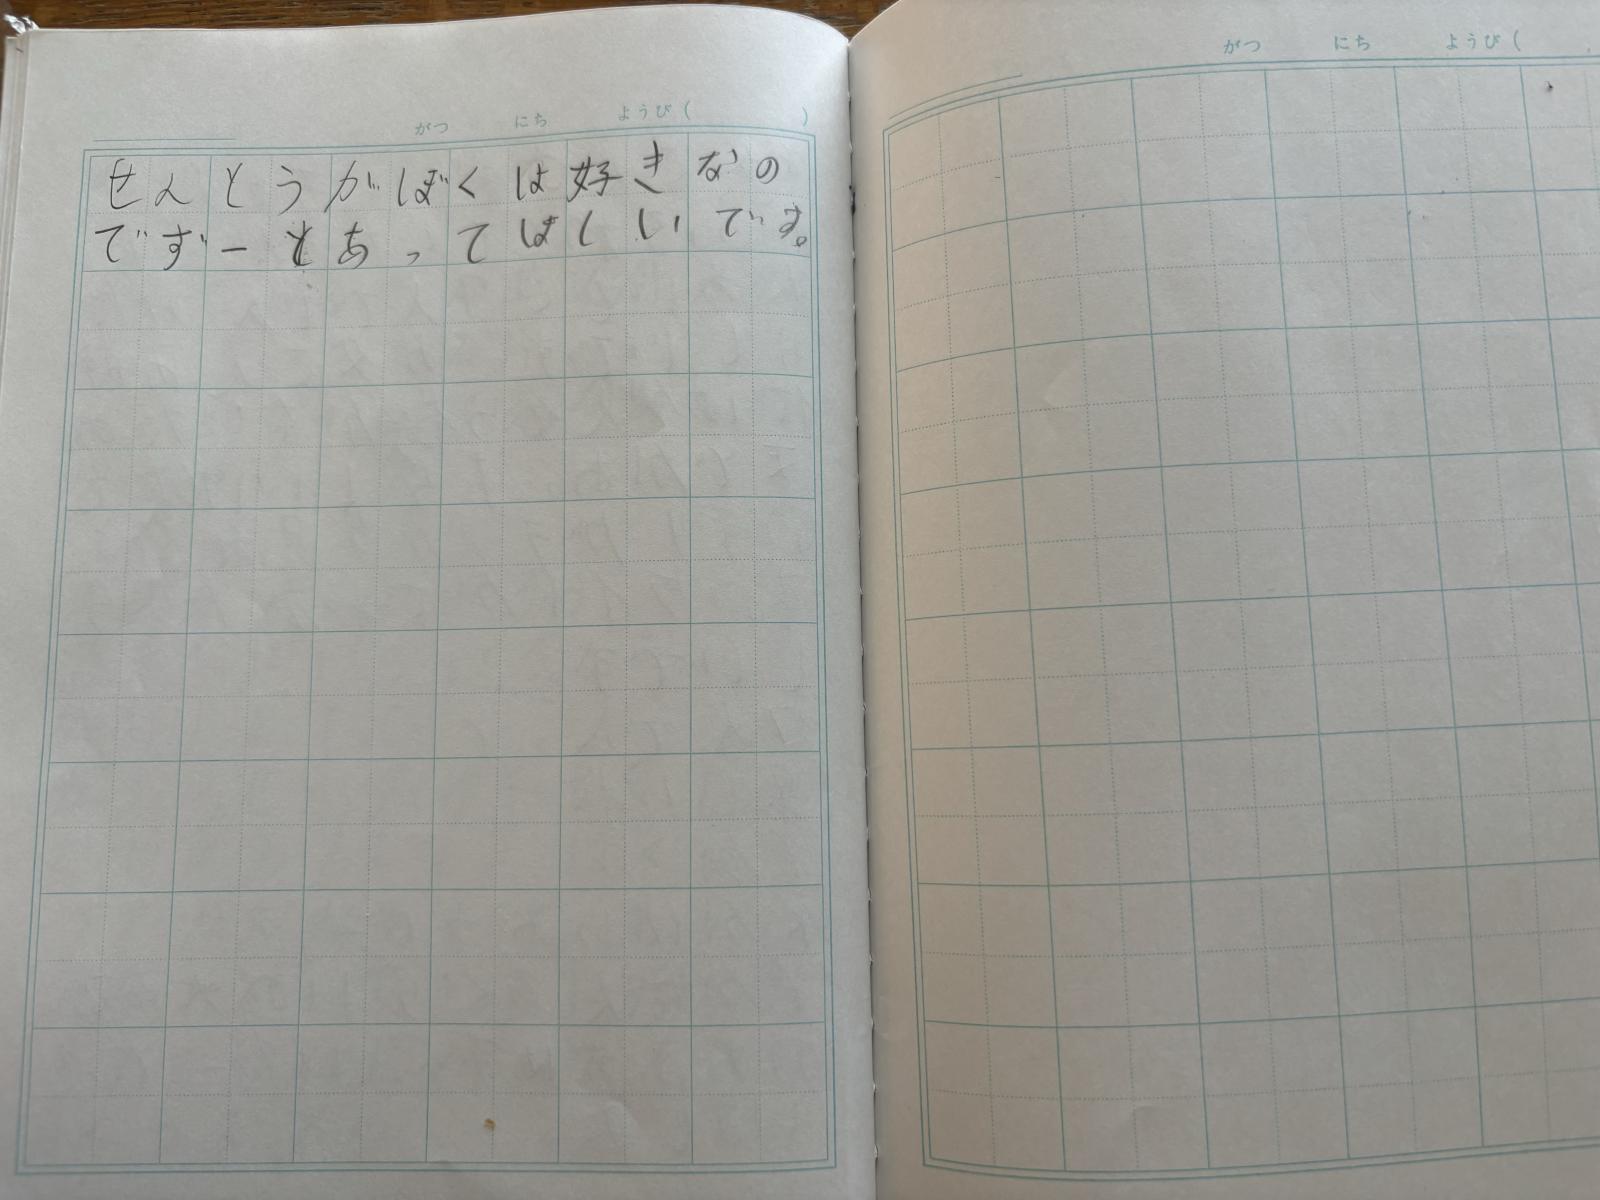 がつ にち ようび( )
せんとうがぼくは好きなの
でずーとあってほしいです。
がつ にち ようび(